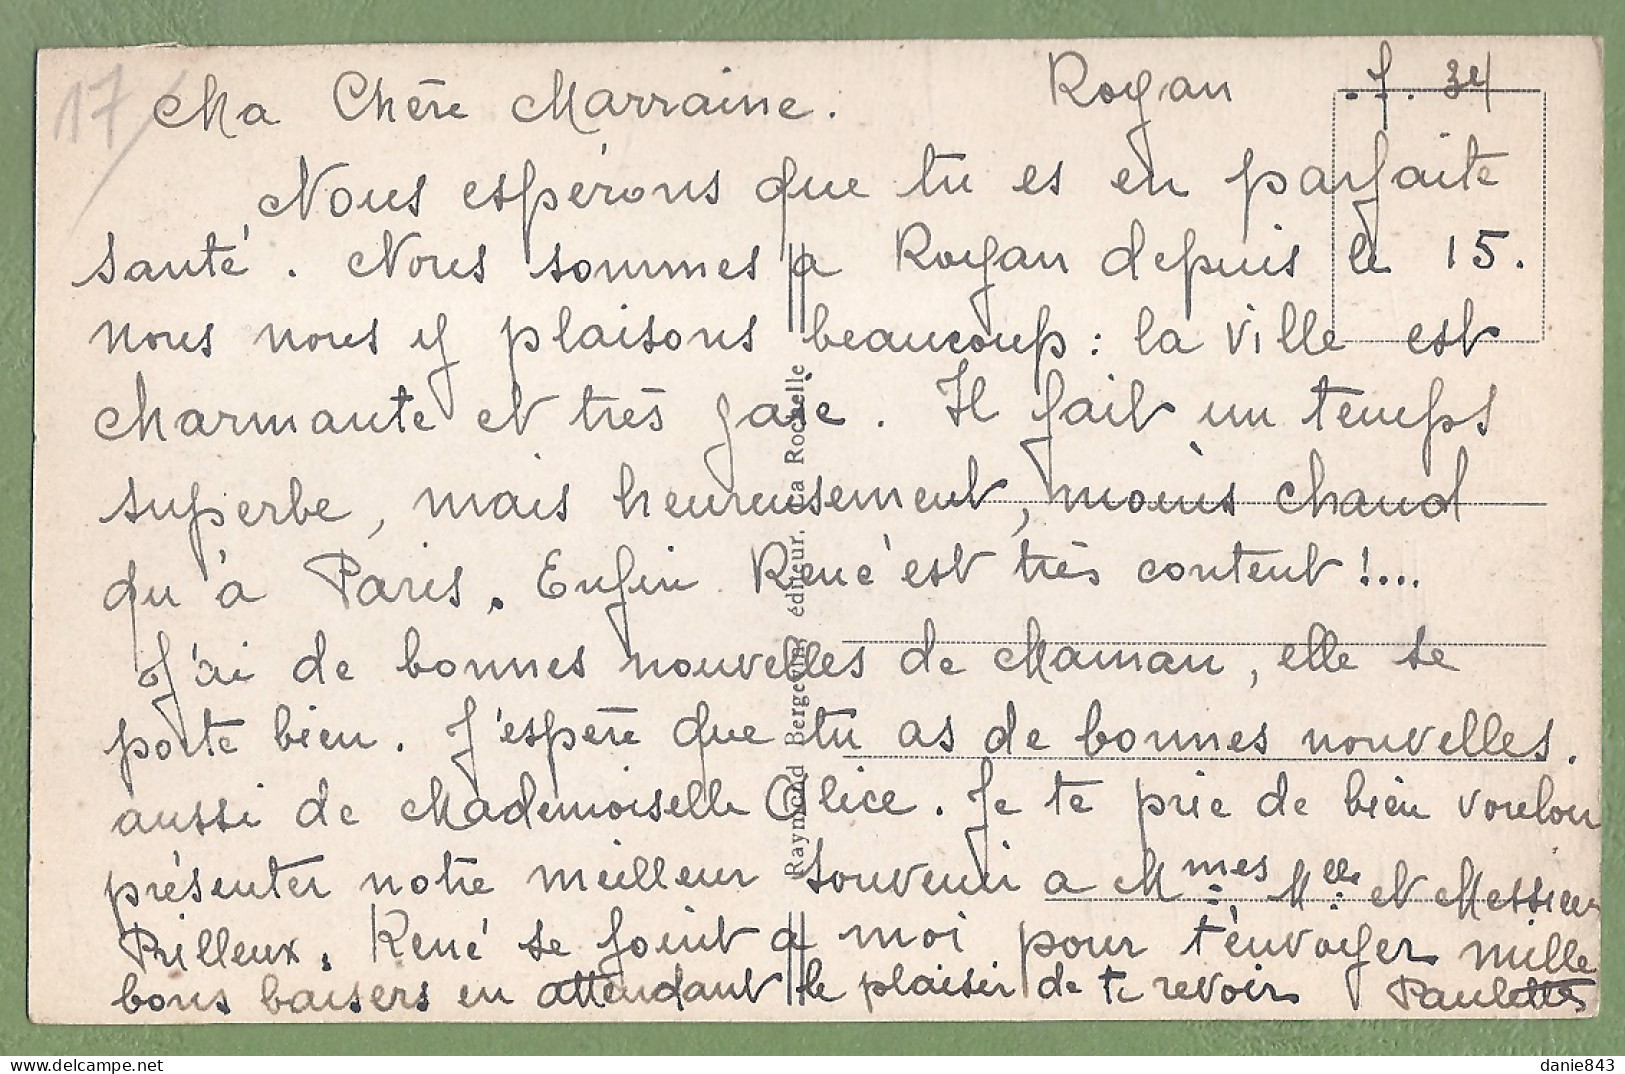 17
Ma Chère Marraine. Royan .7.34
Nous espérons que tu es en parfaite
santé. Nous sommes à Royan depuis le 15.
nous nous y plaisons beaucoup : la ville est
charmante et très gaie. Il fait un temps
superbe, mais heureusement, moins chaud
qu'à Paris. Enfin René est très content !...
J'ai de bonnes nouvelles de Maman, elle se
porte bien. J'espère que tu as de bonnes nouvelles.
aussi de Mademoiselle Alice. Je te prie de bien vouloir
présenter notre meilleur souvenir a Mmes Melle et Messieurs
Rilleux. René se joint à moi pour t'envoyer mille
bons baisers en attendant le plaisir de te revoir Paulette
Raymond Bergevin, éditeur. La Rochelle
danie843